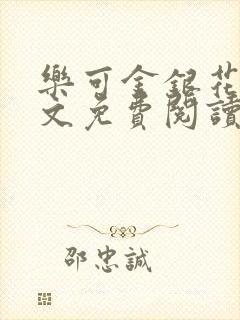 樂可金銀花
文免費閱讀
邵忠誠